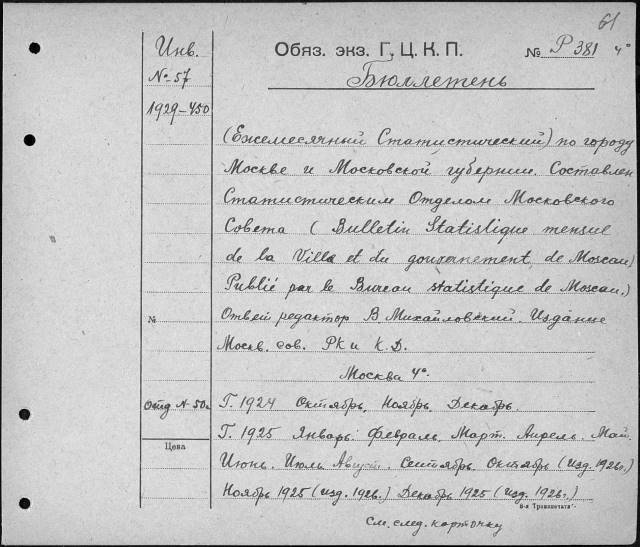 61
Инв.
№ 57
1929-450
Обяз. экз. Г. Ц. К. П. № Р 381 4°
Бюллетень
(Ежемесячный Статистический) по городу
Москве и Московской губернии. Составлен
Статистическим Отделом Московского
Совета (Bulletin Statistique mensuel
de la Ville et du gouvernement de Moscou)
Publié par le Bureau statistique de Moscou.)
№ Ответ редактор В. Михайловский. Издание
Москв. сов. РК и К.Д.
Москва 4°.
Отд Г. 1924 Октябрь, Ноябрь, Декабрь.
Г. 1925 Январь. Февраль, Март. Апрель. Май.
Цена
Июнь. Июль Август. Сентябрь. Октябрь (изд. 1926г.)
Ноябрь 1925 (изд. 1926г.) Декабрь 1925 (изд. 1926г.)
6-я Транспечать
См. след. карточку